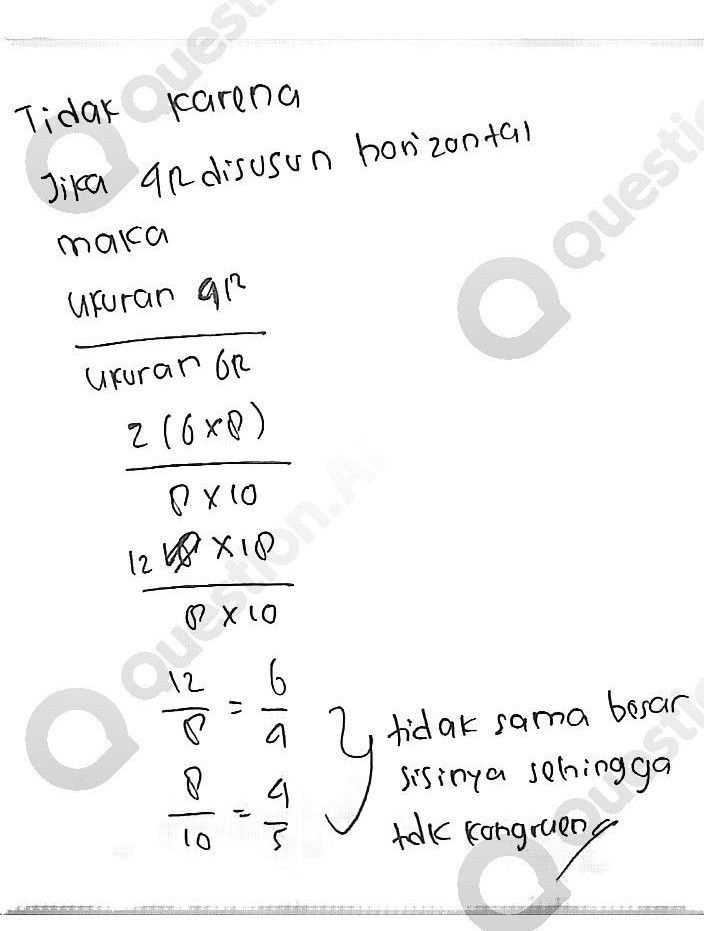 Tidak karena
Jika 4R disusun horizontal
maka
ukuran 4R
ukuran 6R
2 (6x8)
8 x 10
12 x 18
8 x 10
12/8 = 6/4
8/10 = 4/5
tidak sama besar
sisinya sehingga
tdk kongruen
Question.AI